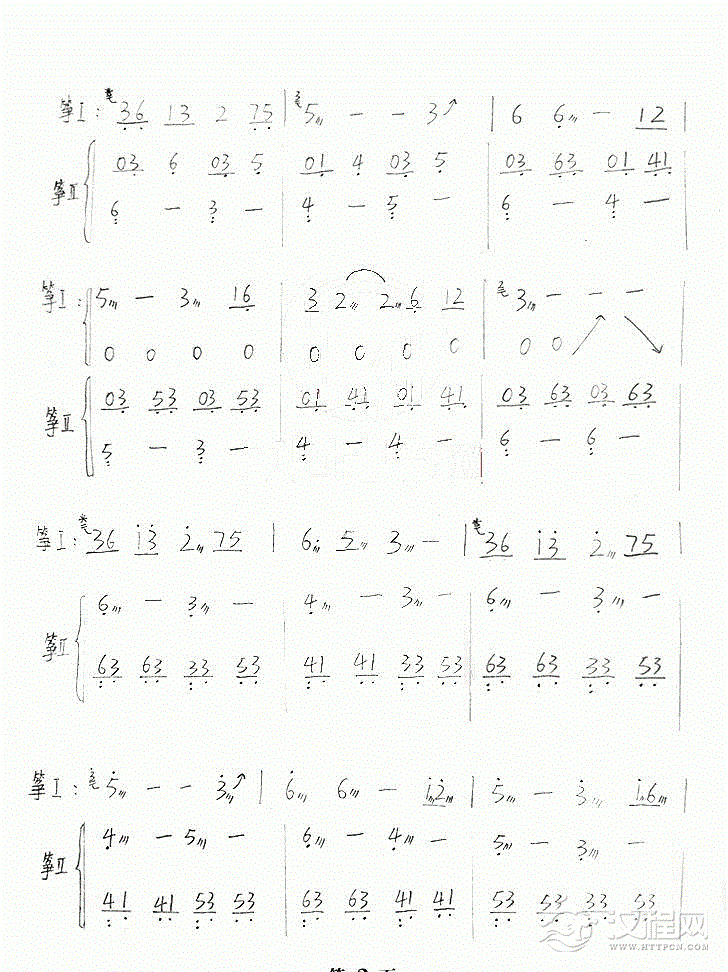 筝Ⅰ: 36 13 2 75 | 5 - - 3↗ | 6 6 - 12 |
筝Ⅱ 03 6 03 5 | 01 4 03 5 | 03 63 01 41
6 - 3 - | 4 - 5 - | 6 - 4 -
筝Ⅰ: 5 - 3 16 | 3 2 2 6 12 | 3 - - -
0 0 0 0 | 0 0 0 0 | 0 0
筝Ⅱ 03 53 03 53 | 01 41 01 41 | 03 63 03 63
5 - 3 - | 4 - 4 - | 6 - 6 -
筝Ⅰ: 36 i3 2 75 | 6 5 3 - | 36 i3 2 75 |
筝Ⅱ 6 - 3 - | 4 - 3 - | 6 - 3 -
63 63 33 53 | 41 41 33 53 | 63 63 33 53
筝Ⅰ: 5 - - 3↗ | 6 6 - i2 | 5 - 3 i6 |
筝Ⅱ 4 - 5 - | 6 - 4 - | 5 - 3 -
41 41 53 53 | 63 63 41 41 | 53 53 53 53
WWW.HTTPCN.COM